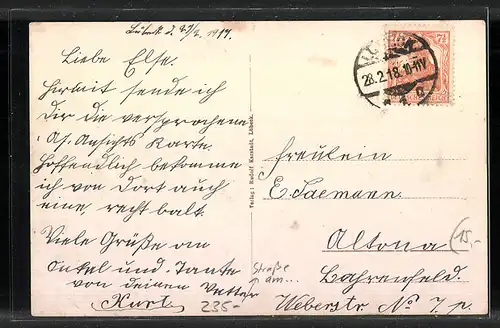 Lübeck d. 27/2. 1917.
Liebe Else.
Hiermit sende ich
dir die versprochene
As. Ansichts Karte.
Hoffendlich bekomme
ich von dort auch
eine recht balt.
Viele Grüße an
Onkel und Tante
von deinen Vetter
Kurt
235-
Straße
am...
Verlag: Rudolf Karstadt, Lübeck.
7½
28.2.18.10-11V
Fräulein
E. Saemann.
Altona
15.-
Bahrenfeld.
Weberstr. No 7, p.